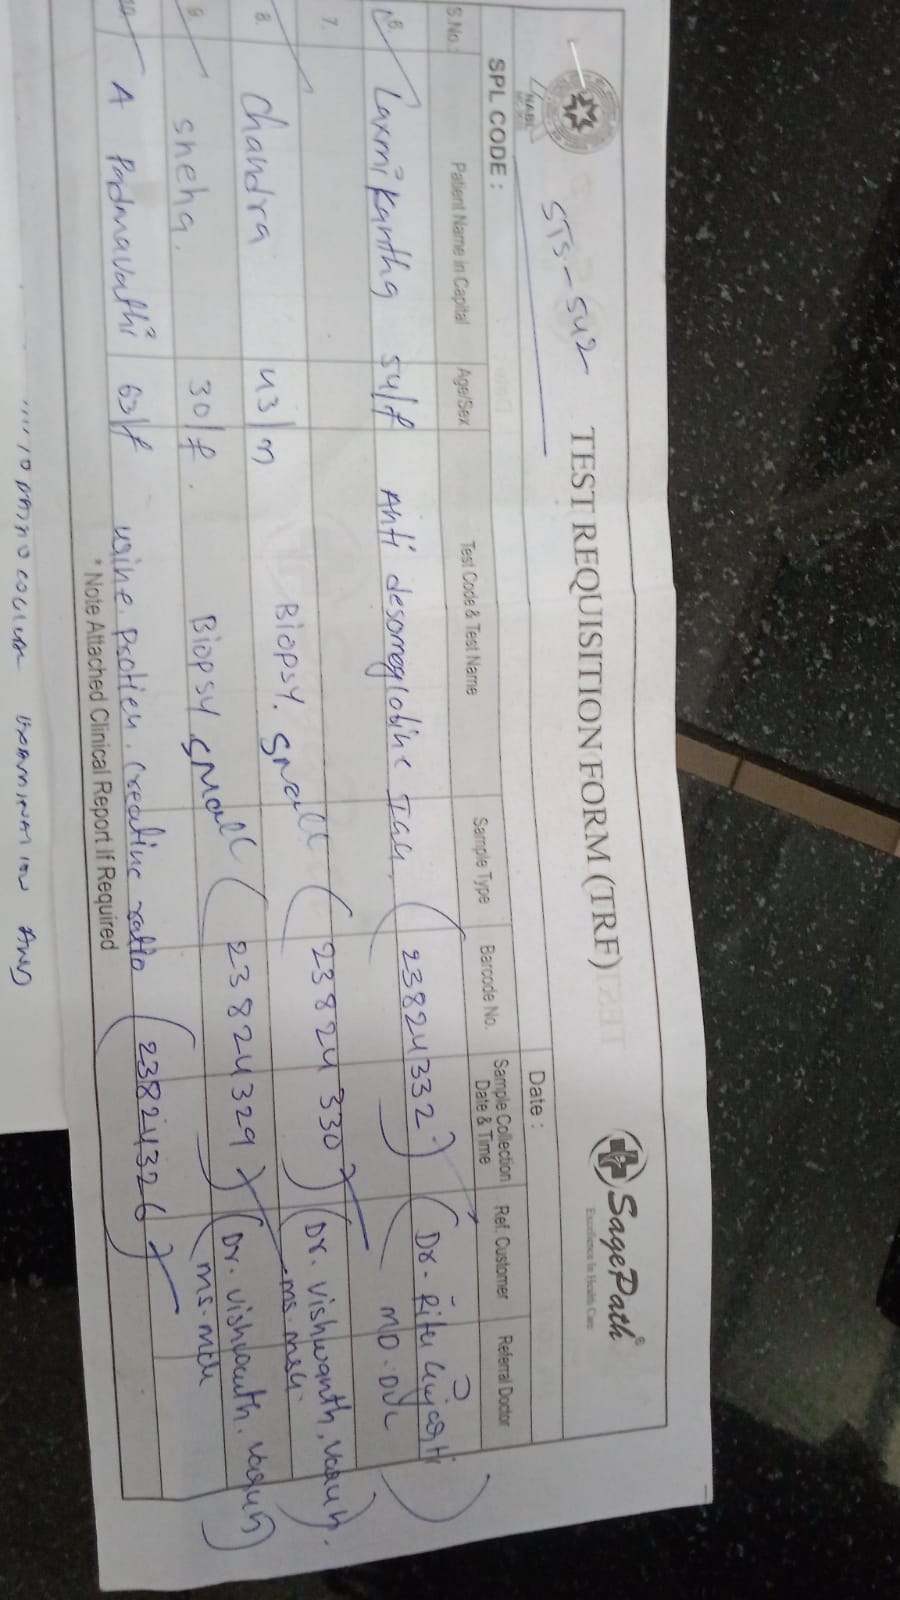 NABL
STS-542
TEST REQUISITION FORM (TRF)
SagePath®
Excellence in Health Care
SPL CODE :
Date :
S No. Patient Name in Capital Age/Sex Test Code & Test Name Sample Type Barcode No. Sample Collection Date & Time Ref. Customer Referral Doctor
6. Laxmikantha 54/f Anti desomeglobine IgG. (23824332) (Dr. Ritu
MD. DVL)
7.
8. Chandra 43/m Biopsy. Small (23824330) (Dr. vishwanth,
ms. mch.)
9. Sneha. 30/f. Biopsy small (23824329) (Dr. vishwanth.
ms. mch)
10. A Padmavathi 63/f urine. protien. creatine ratio (23824326)
* Note Attached Clinical Report If Required